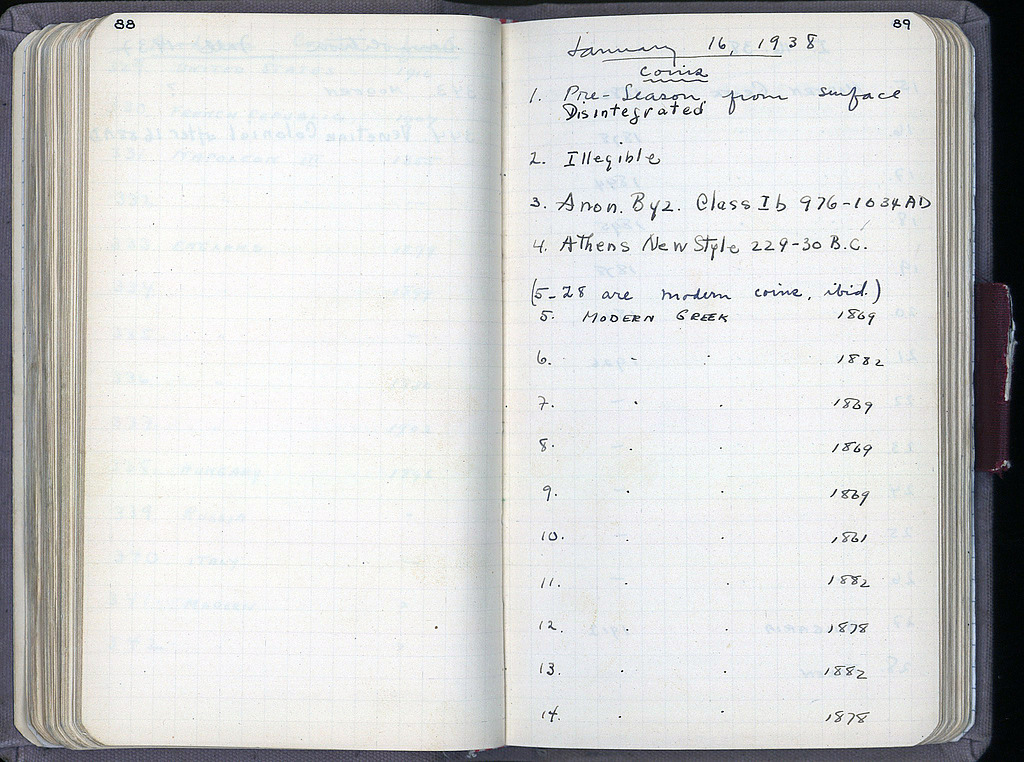 88
89
January 16, 1938
Coins
1. Pre-Season from surface
Disintegrated
2. Illegible
3. Anon. Byz. Class Ib 976-1034 AD
4. Athens New Style 229-30 B.C.
(5-28 are modern coins, ibid.)
5. MODERN GREEK 1869
6. " " 1882
7. " " 1869
8. " " 1869
9. " " 1869
10. " " 1861
11. " " 1882
12. " " 1878
13. " " 1882
14. " " 1878